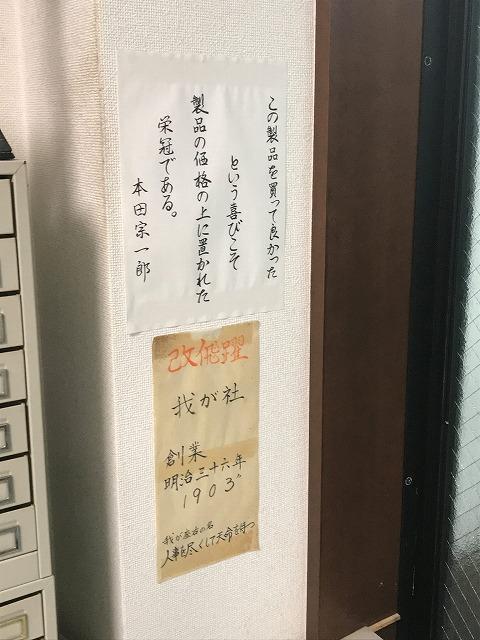 この製品を買って良かった
という喜びこそ
製品の価格の上に置かれた
栄冠である。
本田宗一郎
我が社
創業
明治三十六年
1903
人事を尽くして天命を待つ